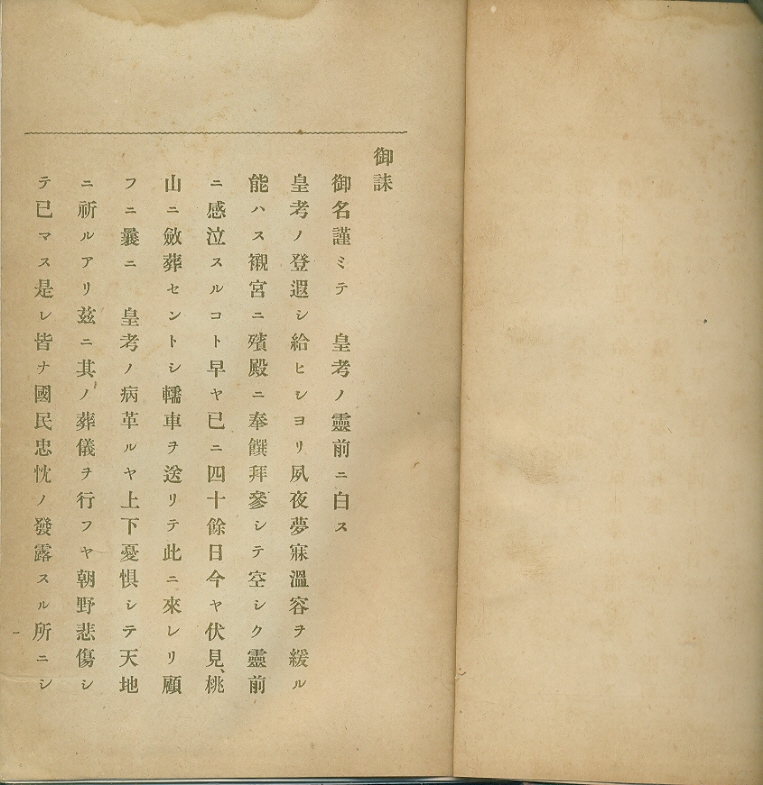 御誄
御名謹ミテ　皇考ノ靈前ニ白ス
皇考ノ登遐シ給ヒシヨリ夙夜夢寐溫容ヲ緩ル
能ハス襯宮ニ殯殿ニ奉饌拜參シテ空シク靈前
ニ感泣スルコト早ヤ已ニ四十餘日今ヤ伏見、桃
山ニ斂葬セントシ轜車ヲ送リテ此ニ來レリ顧
フニ曩ニ　皇考ノ病革ルヤ上下憂惧シテ天地
ニ祈ルアリ玆ニ其ノ葬儀ヲ行フヤ朝野悲傷シ
テ已マス是レ皆ナ國民忠忱ノ發露スル所ニシ